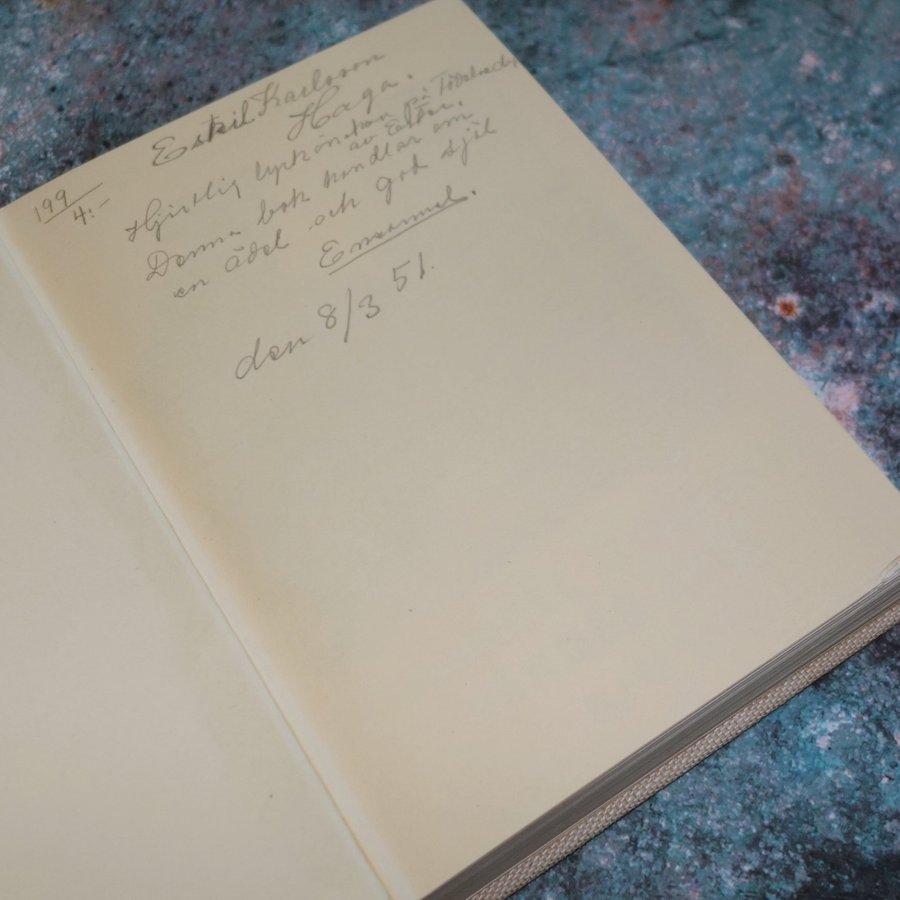 199
4:-
Eskil Karlsson
Haga.
Hjärtlig lyckönskan på Födelsedag
av Ester.
Denna bok handlar om
en ädel och god själ
Emanuel.
den 8/3 51.